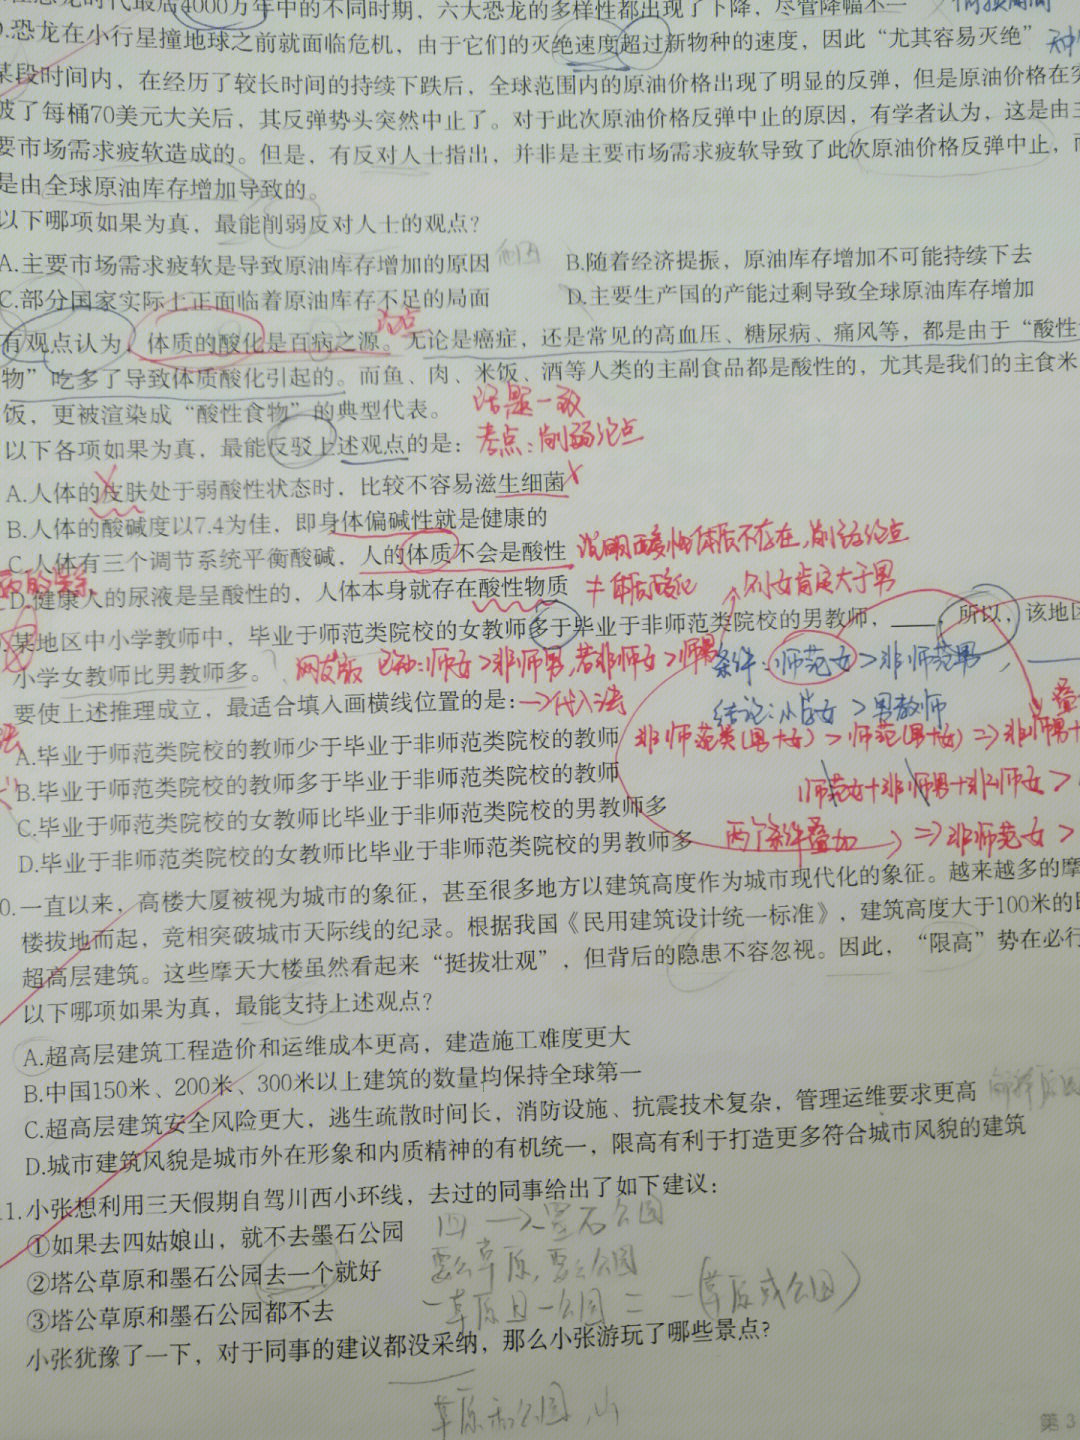 恐龙时代最后4000万年中的不同时期，六大恐龙的多样性都出现了下降，尽管降幅不一
D.恐龙在小行星撞地球之前就面临危机，由于它们的灭绝速度超过新物种的速度，因此“尤其容易灭绝”
某段时间内，在经历了较长时间的持续下跌后，全球范围内的原油价格出现了明显的反弹，但是原油价格在突
破了每桶70美元大关后，其反弹势头突然中止了。对于此次原油价格反弹中止的原因，有学者认为，这是由主
要市场需求疲软造成的。但是，有反对人士指出，并非是主要市场需求疲软导致了此次原油价格反弹中止，而
是由全球原油库存增加导致的。
以下哪项如果为真，最能削弱反对人士的观点？
A.主要市场需求疲软是导致原油库存增加的原因 他因 B.随着经济提振，原油库存增加不可能持续下去
C.部分国家实际上正面临着原油库存不足的局面 D.主要生产国的产能过剩导致全球原油库存增加
论点
有观点认为，体质的酸化是百病之源。无论是癌症，还是常见的高血压、糖尿病、痛风等，都是由于“酸性
物”吃多了导致体质酸化引起的。而鱼、肉、米饭、酒等人类的主副食品都是酸性的，尤其是我们的主食米
饭，更被渲染成“酸性食物”的典型代表。 话题一致
以下各项如果为真，最能反驳上述观点的是： 考点：削弱论点
A.人体的皮肤处于弱酸性状态时，比较不容易滋生细菌 X
B.人体的酸碱度以7.4为佳，即身体偏碱性就是健康的
C.人体有三个调节系统平衡酸碱，人的体质不会是酸性 说明酸性体质不存在，削弱论点
D.健康人的尿液是呈酸性的，人体本身就存在酸性物质 ≠体质酸化 小女肯定大于男
某地区中小学教师中，毕业于师范类院校的女教师多于毕业于非师范类院校的男教师，____，所以，该地区
小学女教师比男教师多。 已知：师女>非师男，若非师女>师男 条件：师范女>非师范男，
要使上述推理成立，最适合填入画横线位置的是： →代入法 结论：小学女>男教师
A.毕业于师范类院校的教师少于毕业于非师范类院校的教师 非师范类(男+女)>师范(男+女)⇒非师男+
B.毕业于师范类院校的教师多于毕业于非师范类院校的教师 师范女+非师男+非师女>
C.毕业于师范类院校的女教师比毕业于非师范类院校的男教师多
D.毕业于非师范类院校的女教师比毕业于师范类院校的男教师多 两个条件叠加 ⇒非师范女>
0.一直以来，高楼大厦被视为城市的象征，甚至很多地方以建筑高度作为城市现代化的象征。越来越多的摩
楼拔地而起，竞相突破城市天际线的纪录。根据我国《民用建筑设计统一标准》，建筑高度大于100米的
超高层建筑。这些摩天大楼虽然看起来“挺拔壮观”，但背后的隐患不容忽视。因此，“限高”势在必行
以下哪项如果为真，最能支持上述观点？
A.超高层建筑工程造价和运维成本更高，建造施工难度更大
B.中国150米、200米、300米以上建筑的数量均保持全球第一
C.超高层建筑安全风险更大，逃生疏散时间长，消防设施、抗震技术复杂，管理运维要求更高
D.城市建筑风貌是城市外在形象和内质精神的有机统一，限高有利于打造更多符合城市风貌的建筑
11.小张想利用三天假期自驾川西小环线，去过的同事给出了如下建议：
①如果去四姑娘山，就不去墨石公园 四→墨石公园
②塔公草原和墨石公园去一个就好 要么草原，要么公园
③塔公草原和墨石公园都不去 一草原且一公园=一(草原或公园)
小张犹豫了一下，对于同事的建议都没采纳，那么小张游玩了哪些景点？
草原和公园，山
第3